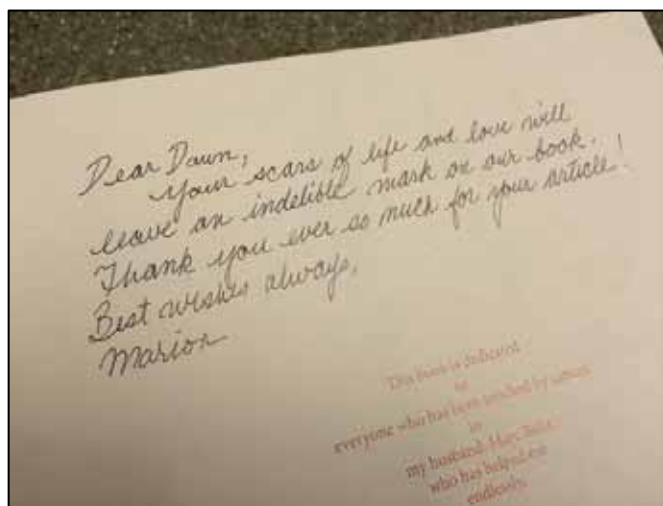 Dear Dawn,
Your scars of life and love will
leave an indelible mark on our book.
Thank you ever so much for your article!
Best wishes always,
Marion
This book is dedicated
to
everyone who has been touched by
to
my husband, Marc
who has helped me
endlessly.